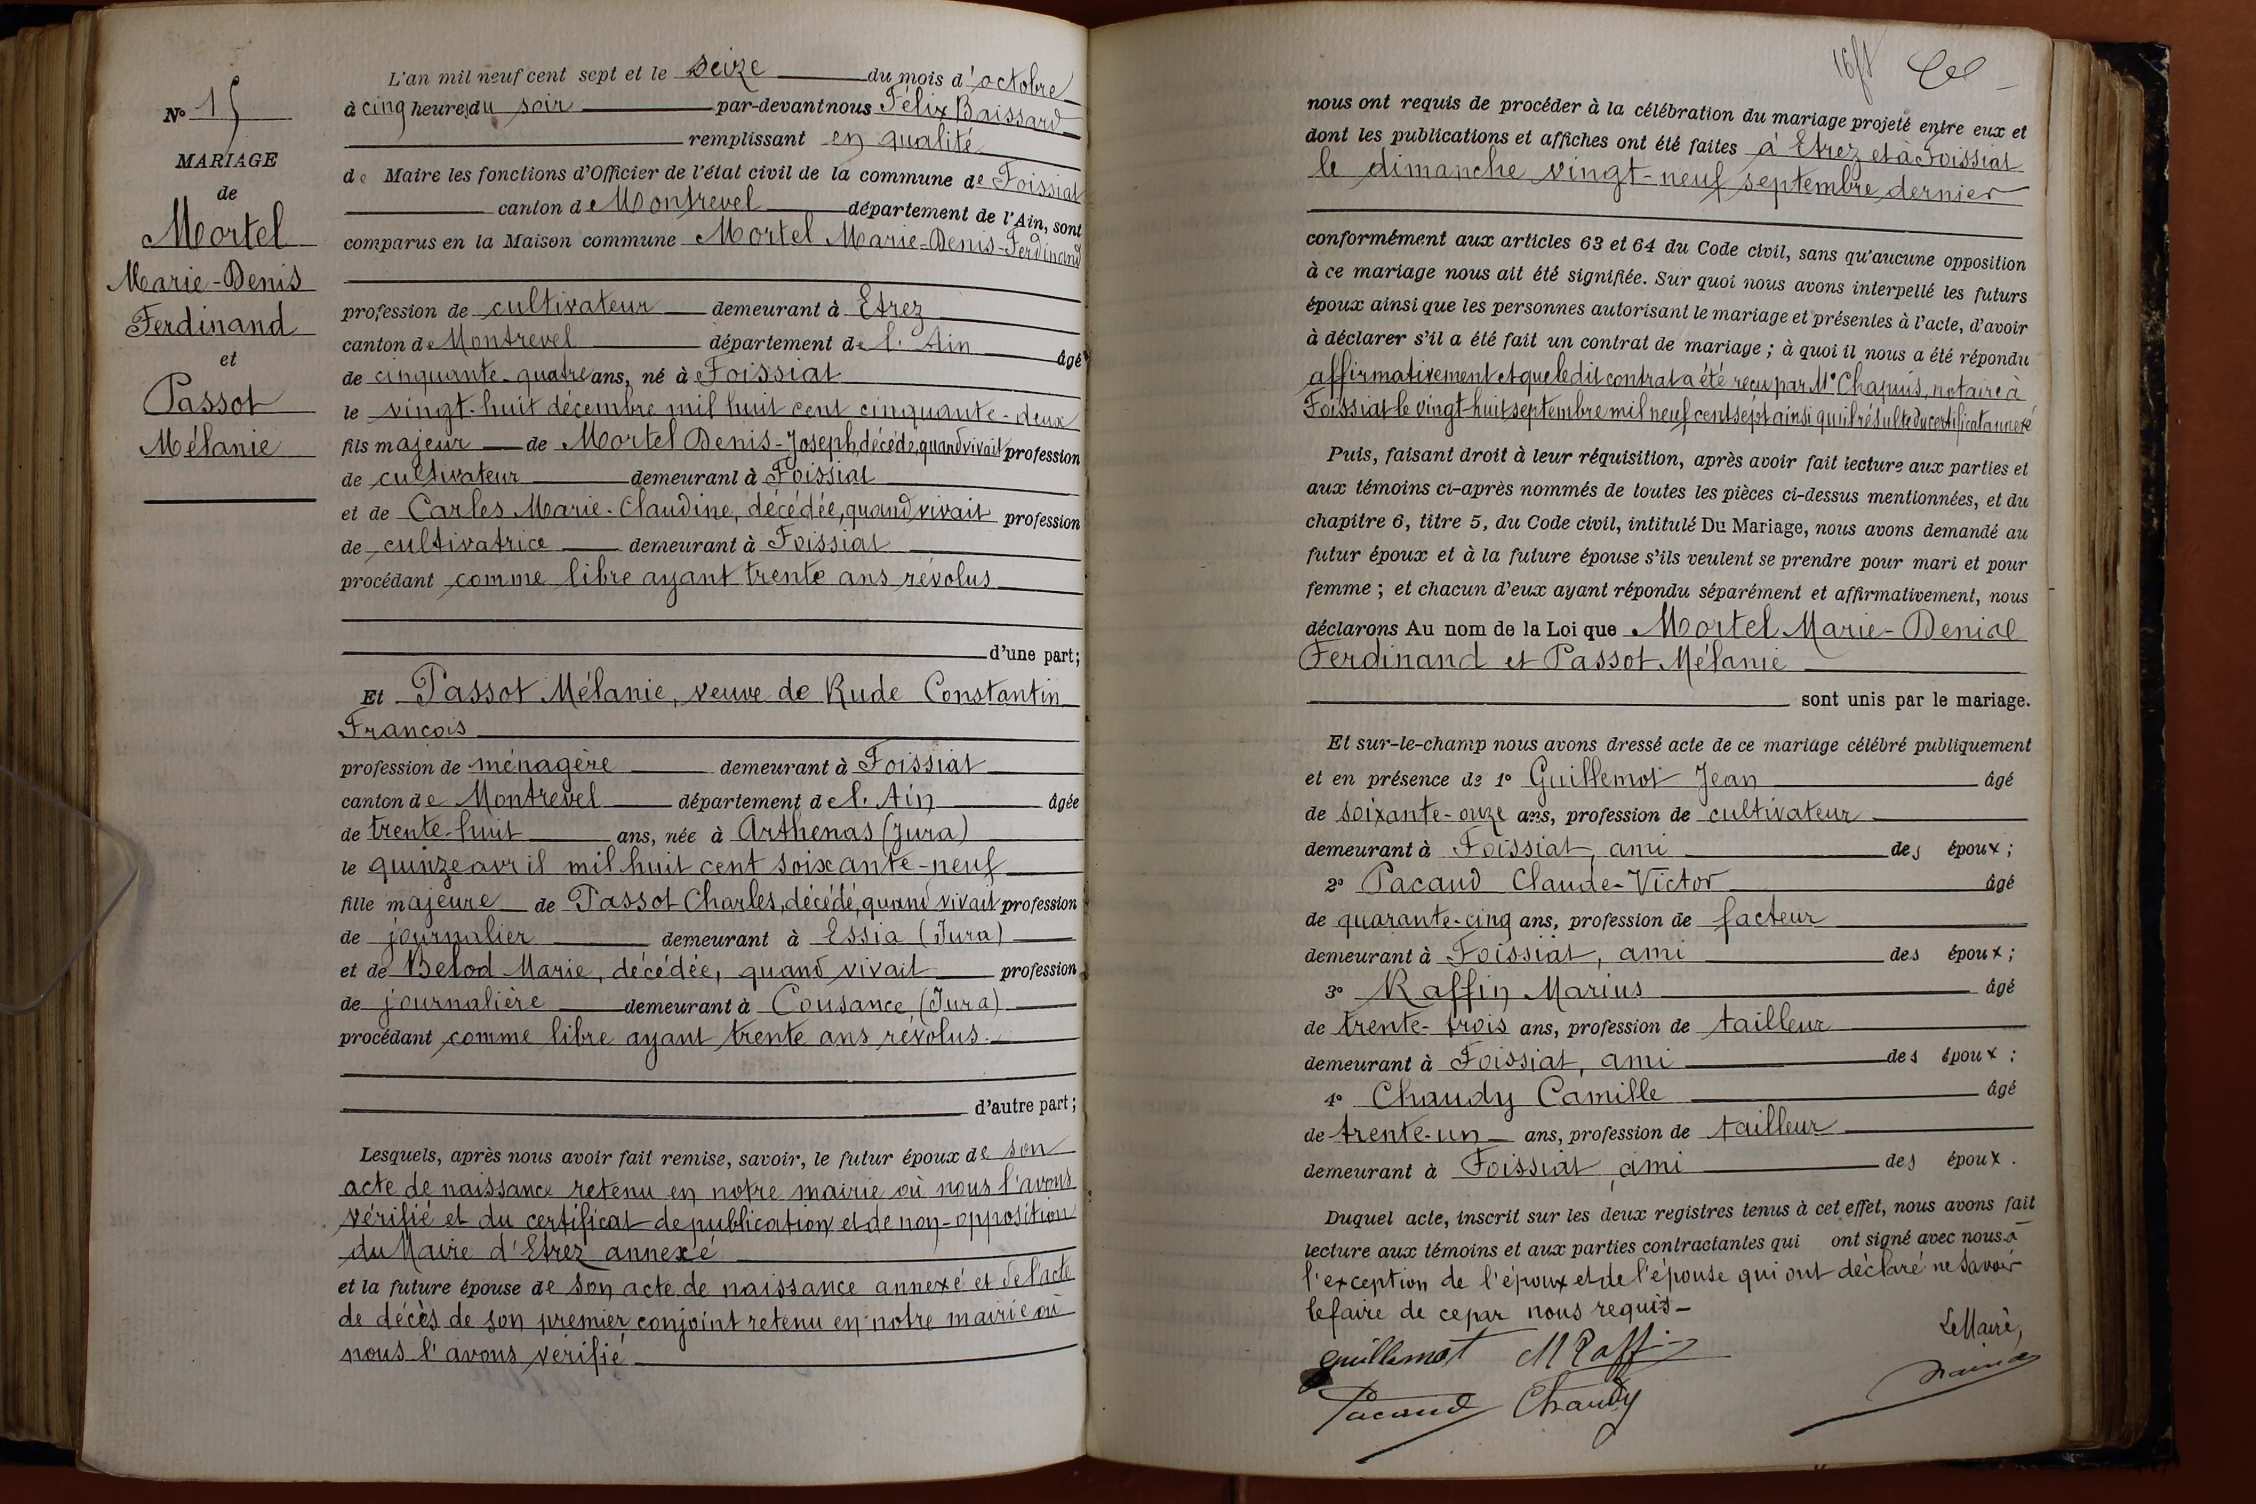 N° 15
MARIAGE
de
Mortel
Marie-Denis
Ferdinand
et
Passot
Mélanie
L'an mil neuf cent sept et le seize du mois d'octobre
à cinq heures du soir par-devant nous Félix Baissard
remplissant en qualité
de Maire les fonctions d'Officier de l'état civil de la commune de Foissiat
canton de Montrevel département de l'Ain, sont
comparus en la Maison commune Mortel Marie-Denis-Ferdinand
profession de cultivateur demeurant à Etrez
canton de Montrevel département de l'Ain âgé
de cinquante-quatre ans, né à Foissiat
le vingt-huit décembre mil huit cent cinquante-deux
fils majeur de Mortel Denis-Joseph, décédé, quand vivait profession
de cultivateur demeurant à Foissiat
et de Carles Marie-Claudine, décédée, quand vivait profession
de cultivatrice demeurant à Foissiat
procédant comme libre ayant trente ans révolus
d'une part;
Et Passot Mélanie, veuve de Rude Constantin
François
profession de ménagère demeurant à Foissiat
canton de Montrevel département de l'Ain âgée
de trente-huit ans, née à Arthenas (Jura)
le quinze avril mil huit cent soixante-neuf
fille majeure de Passot Charles, décédé, quand vivait profession
de journalier demeurant à Essia (Jura)
et de Belod Marie, décédée, quand vivait profession
de journalière demeurant à Cousance (Jura)
procédant comme libre ayant trente ans révolus.
d'autre part;
Lesquels, après nous avoir fait remise, savoir, le futur époux de son
acte de naissance retenu en notre mairie où nous l'avons
vérifié et du certificat de publication et de non-opposition
du Maire d'Etrez annexé
et la future épouse de son acte de naissance annexé et de l'acte
de décès de son premier conjoint retenu en notre mairie où
nous l'avons vérifié
nous ont requis de procéder à la célébration du mariage projeté entre eux et
dont les publications et affiches ont été faites à Etrez et à Foissiat
le dimanche vingt-neuf septembre dernier
conformément aux articles 63 et 64 du Code civil, sans qu'aucune opposition
à ce mariage nous ait été signifiée. Sur quoi nous avons interpellé les futurs
époux ainsi que les personnes autorisant le mariage et présentes à l'acte, d'avoir
à déclarer s'il a été fait un contrat de mariage; à quoi il nous a été répondu
affirmativement et que ledit contrat a été reçu par Me Chapuis, notaire à
Foissiat le vingt-huit septembre mil neuf cent sept ainsi qu'il résulte du certificat annexé
Puis, faisant droit à leur réquisition, après avoir fait lecture aux parties et
aux témoins ci-après nommés de toutes les pièces ci-dessus mentionnées, et du
chapitre 6, titre 5, du Code civil, intitulé Du Mariage, nous avons demandé au
futur époux et à la future épouse s'ils veulent se prendre pour mari et pour
femme; et chacun d'eux ayant répondu séparément et affirmativement, nous
déclarons Au nom de la Loi que Mortel Marie-Denise
Ferdinand et Passot Mélanie
sont unis par le mariage.
Et sur-le-champ nous avons dressé acte de ce mariage célébré publiquement
et en présence de 1° Guillemot Jean âgé
de soixante-onze ans, profession de cultivateur
demeurant à Foissiat, ami des époux;
2° Pacaud Claude-Victor âgé
de quarante-cinq ans, profession de facteur
demeurant à Foissiat, ami des époux;
3° Raffin Marius âgé
de trente-trois ans, profession de tailleur
demeurant à Foissiat, ami des époux;
4° Chaudy Camille âgé
de trente-un ans, profession de tailleur
demeurant à Foissiat, ami des époux.
Duquel acte, inscrit sur les deux registres tenus à cet effet, nous avons fait
lecture aux témoins et aux parties contractantes qui ont signé avec nous à
l'exception de l'époux et de l'épouse qui ont déclaré ne savoir
le faire de ce par nous requis-
Le Maire,
Guillemot M Raffin
Pacaud Chaudy